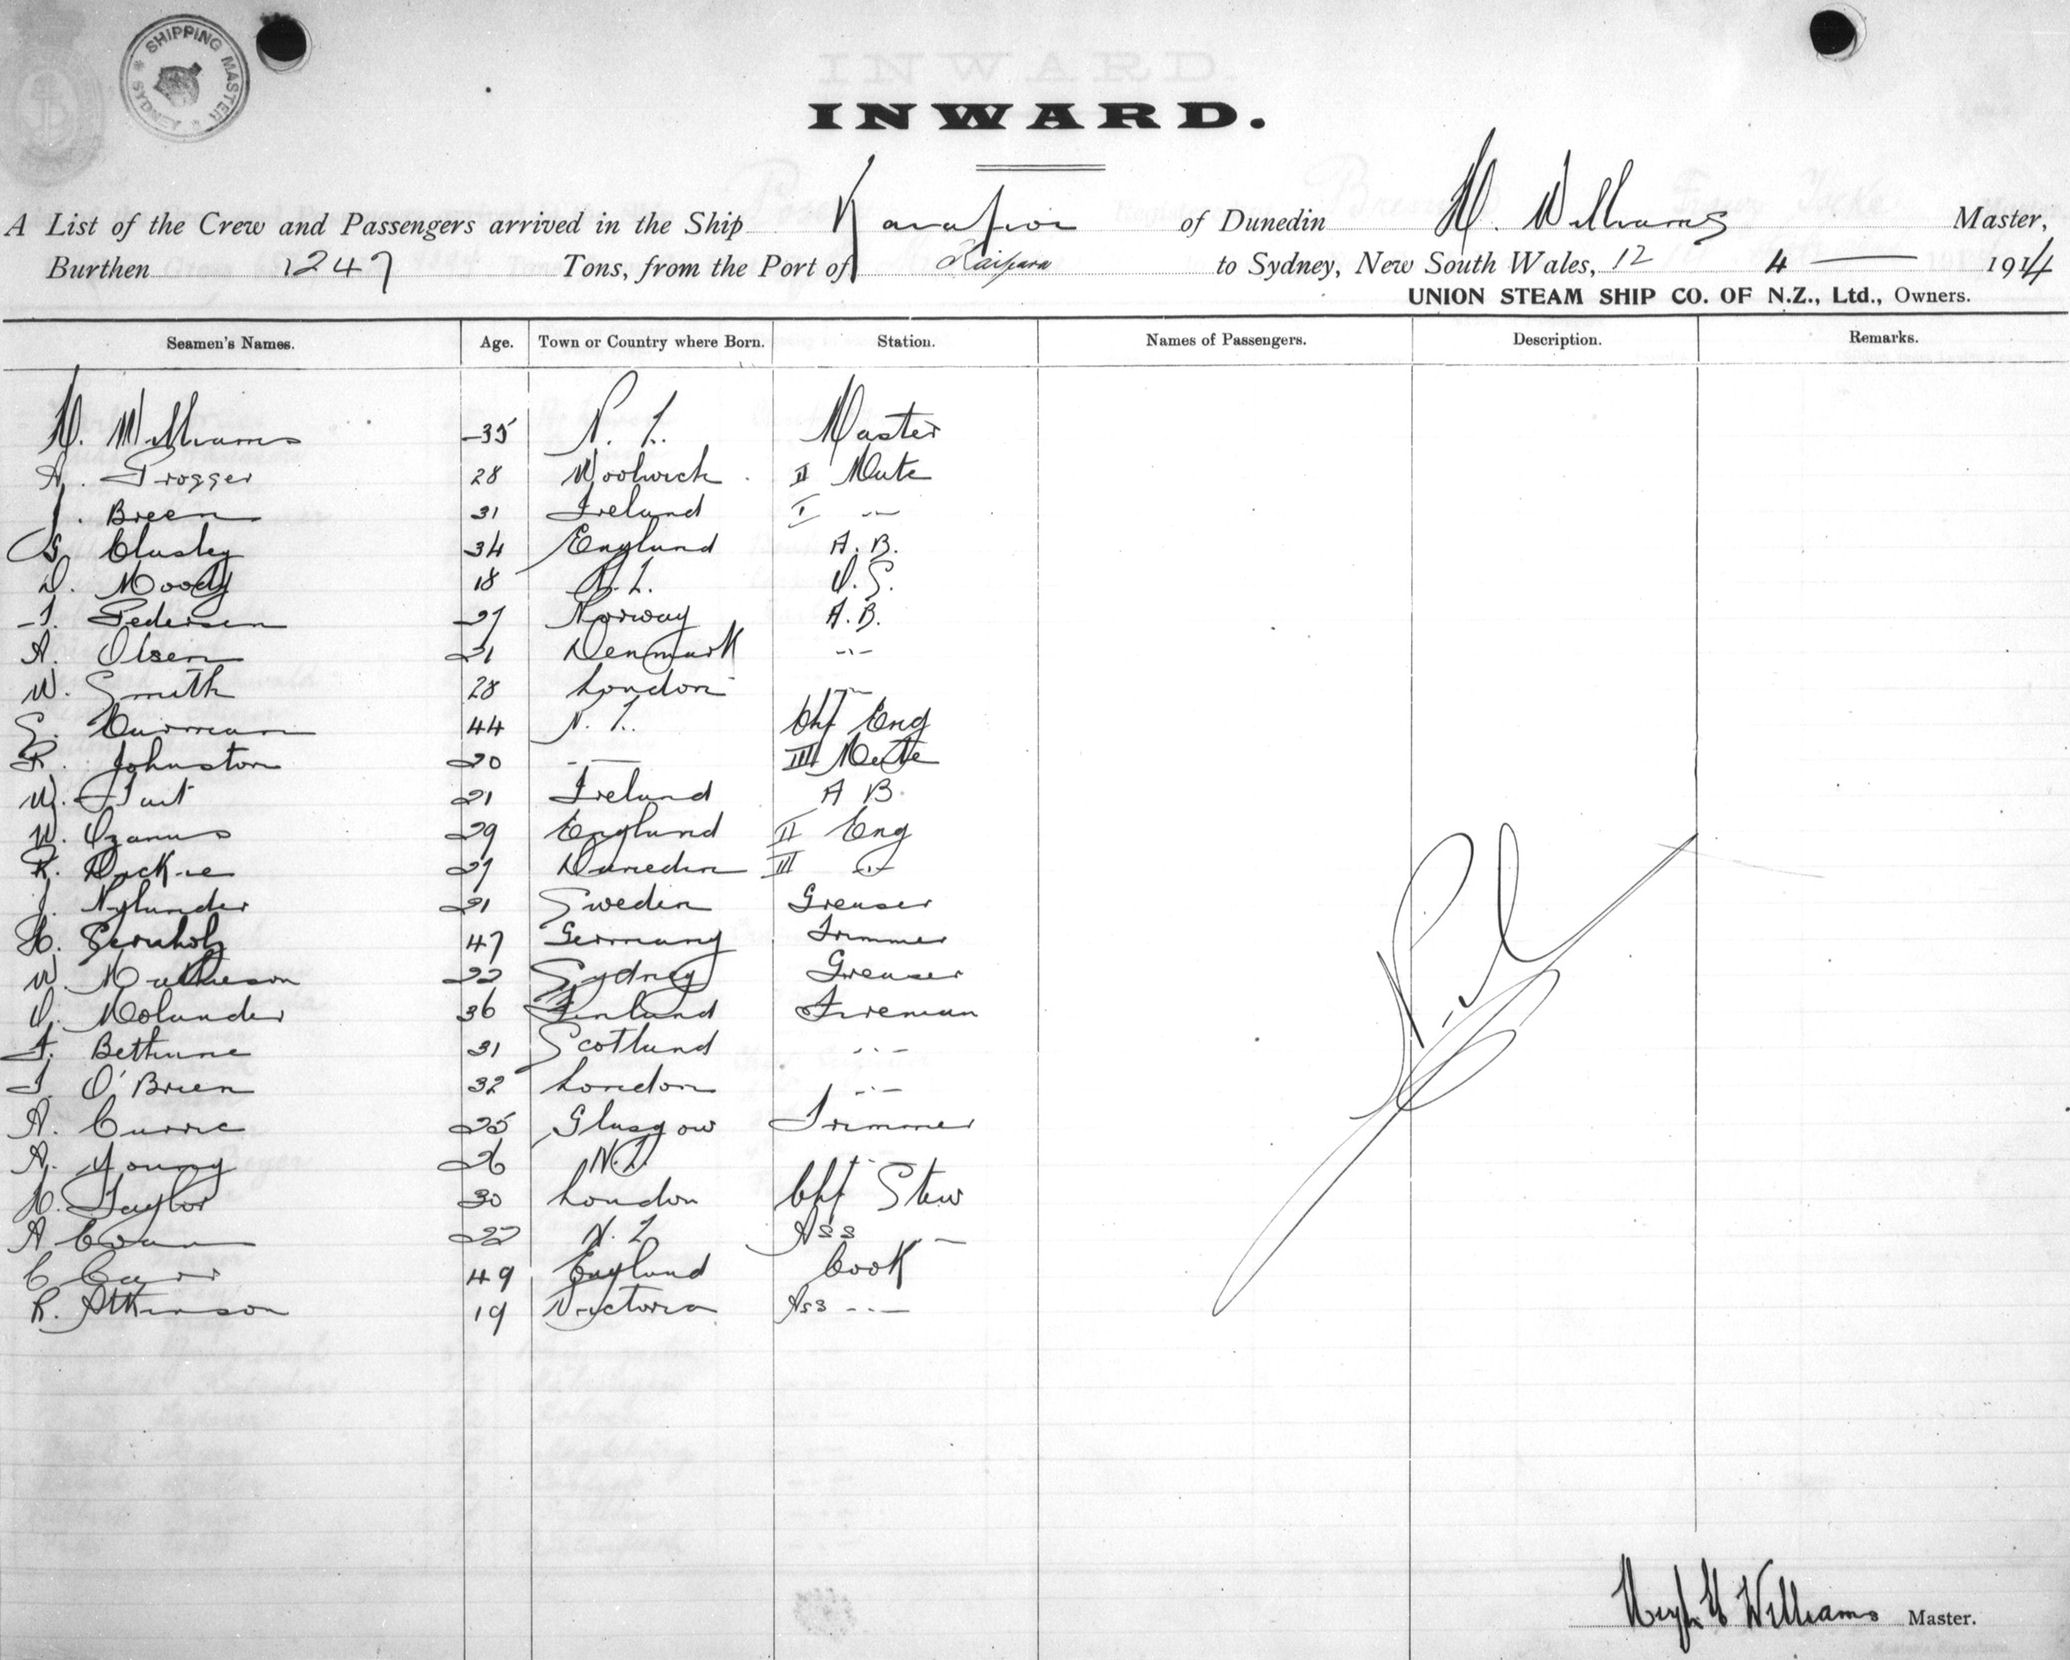 SHIPPING MASTER
SYDNEY
INWARD.
A List of the Crew and Passengers arrived in the Ship of Dunedin H. Williams Master,
Burthen 1247 Tons, from the Port of Kaipara to Sydney, New South Wales, 12 4 1914
UNION STEAM SHIP CO. OF N.Z., Ltd., Owners.
Seamen's Names. Age. Town or Country where Born. Station. Names of Passengers. Description. Remarks.
H. Williams 35 N.Z. Master
A. Progger 28 Woolwich II Mate
J. Breen 31 Ireland I -"-
G. Clusky 34 England A.B.
D. Moody 18 N.Z. O.S.
T. Pedersen 27 Norway A.B.
A. Olsen 21 Denmark -"-
W. Smith 28 London -"-
S. 44 N.Z. Chf Eng
R. Johnston 20 -"- III Mate
W. Tait 21 Ireland A B.
W. Ozanus 29 England II Eng
R. Dickie 27 Dunedin III -"-
J. Nylander 21 Sweden Greaser
H. 47 Germany Trimmer
W. Mathieson 22 Sydney Greaser
O. Molander 36 Finland Fireman
F. Bethune 31 Scotland -"-
T. O'Brien 32 London -"-
A. Currie 25 Glasgow Trimmer
A. Young 26 N.Z. -"-
H. Taylor 30 London Chf Stew
A 22 N.Z Ass -"-
C Carr 49 England Cook
R. Atkinson 19 Victoria Ass -"-
Nil
Hugh H Williams Master.